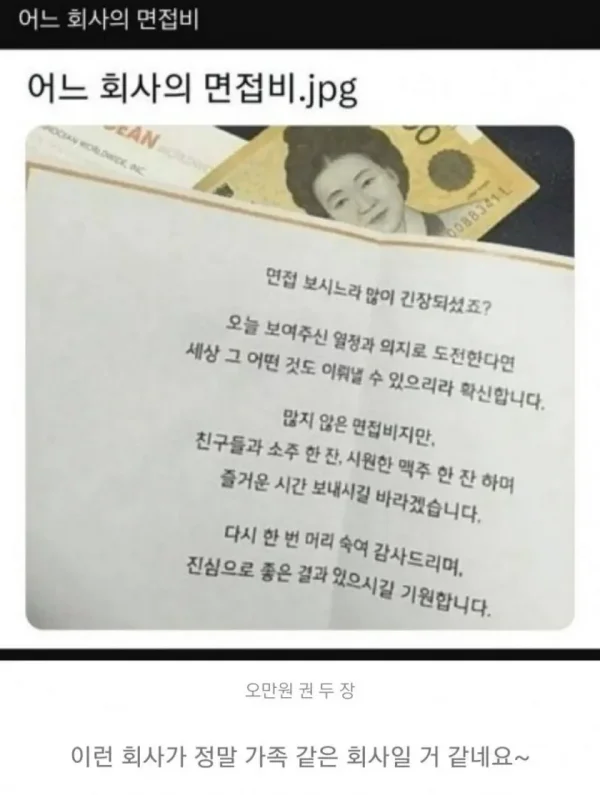 어느 회사의 면접비
어느 회사의 면접비.jpg
EAN
WORLDWIDE, INC.
면접 보시느라 많이 긴장되셨죠?
오늘 보여주신 열정과 의지로 도전한다면
세상 그 어떤 것도 이뤄낼 수 있으리라 확신합니다.
많지 않은 면접비지만,
친구들과 소주 한 잔, 시원한 맥주 한 잔 하며
즐거운 시간 보내시길 바라겠습니다.
다시 한 번 머리 숙여 감사드리며,
진심으로 좋은 결과 있으시길 기원합니다.
오만원 권 두 장
이런 회사가 정말 가족 같은 회사일 거 같네요~